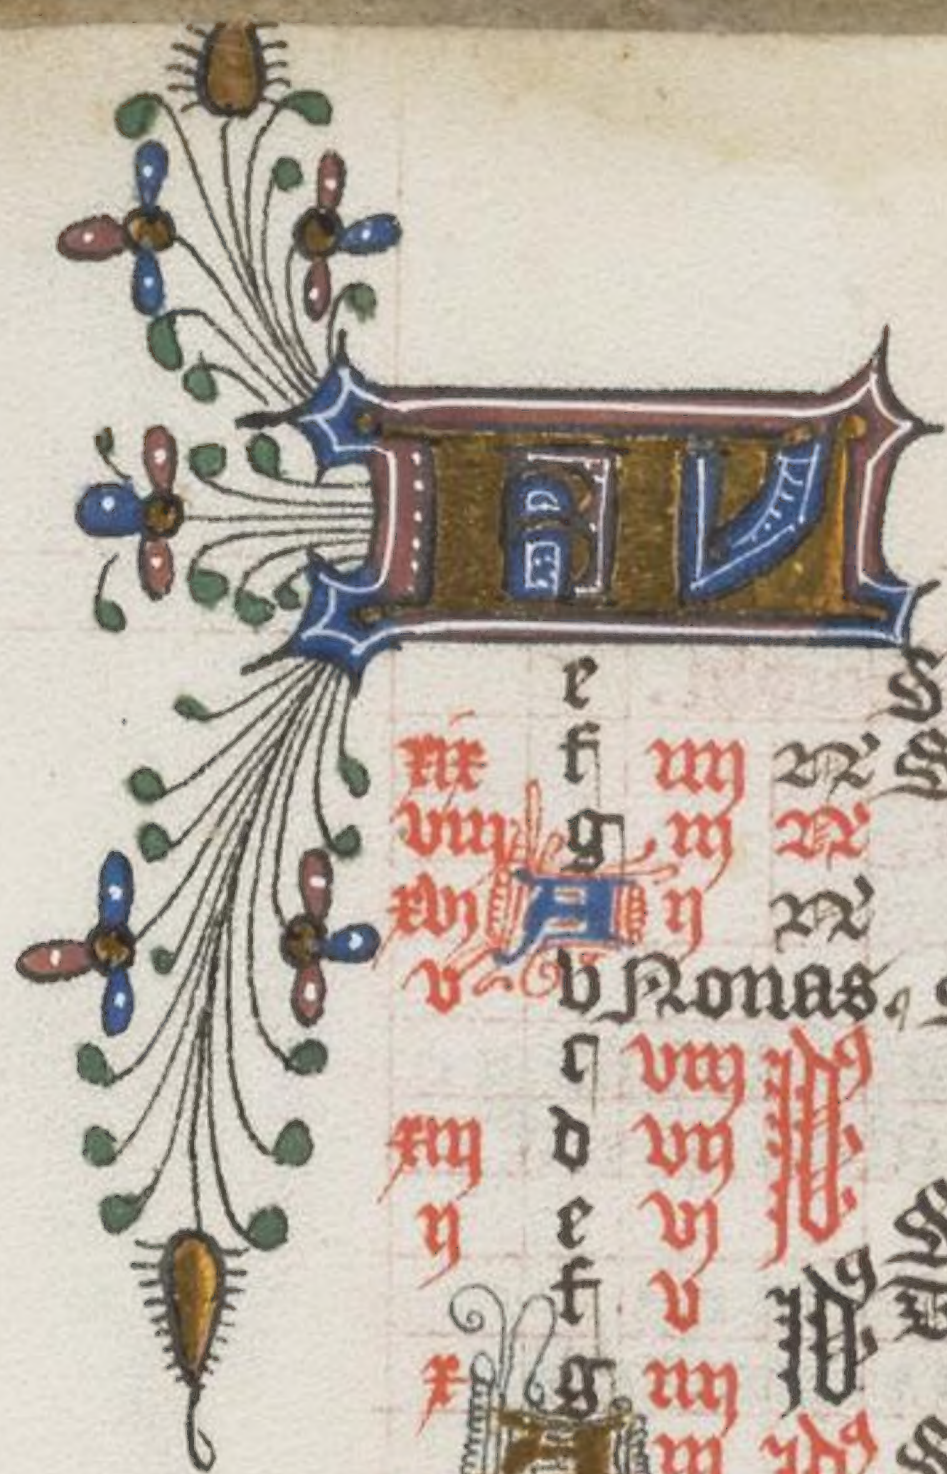 KL
e
xix f iiij N
viij g iij N
xvj A ij N
v b Nonas.
c viij Id
xiij d vij
ij e vj
f v Id
x g iiij
A iij Id